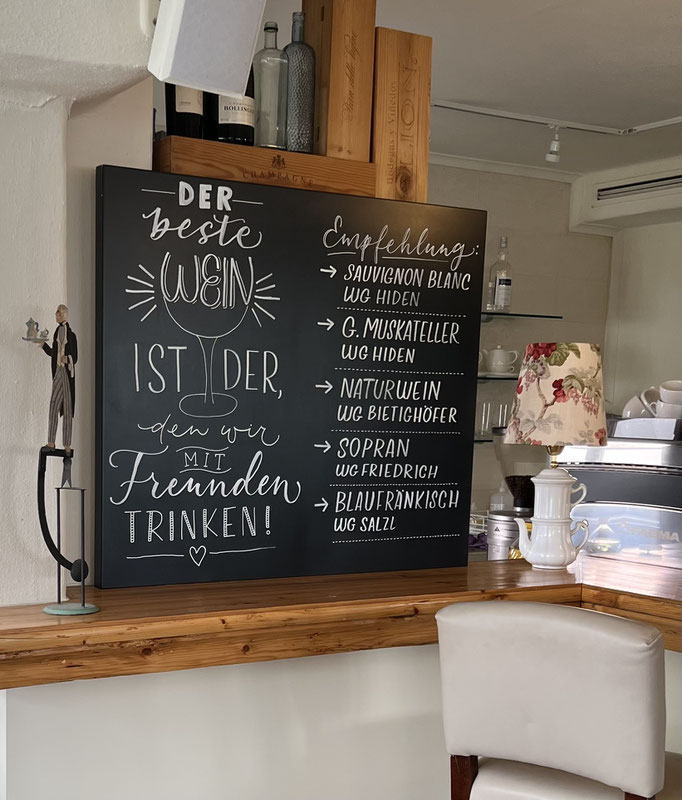 BOLLINGER
LION
CHAMPAGNE
DER
beste
WEIN
IST DER,
den wir
MIT
Freunden
TRINKEN!
Empfehlung:
→ SAUVIGNON BLANC
WG HIDEN
→ G. MUSKATELLER
WG HIDEN
→ NATURWEIN
WG BIETIGHÖFER
→ SOPRAN
WG FRIEDRICH
→ BLAUFRÄNKISCH
WG SALZL